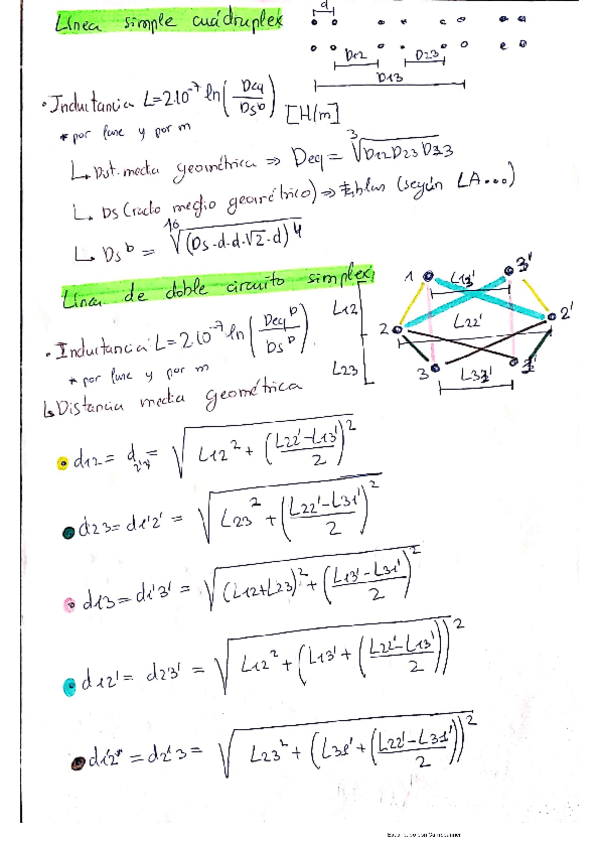 Línea simple cuádruplex
d
D12 D23
D13
• Inductancia L=2·10⁻⁷ ln(Deq/Dsᵇ) [H/m]
* por fase y por m
↳ Dist. media geométrica ⇒ Deq = ∛(D12 D23 D13)
↳ Ds (radio medio geométrico) ⇒ tablas (según LA...)
↳ Dsᵇ = ¹⁶√((Ds·d·d·√2·d)⁴)
Línea de doble circuito simplex
1 L13' 3'
L12
2 L22' 2'
L23
3 L31' 1'
• Inductancia: L=2·10⁻⁷ ln(Deqᵖ/Dsᵖ)
* por fase y por m
↳ Distancia media geométrica
d12 = d2'3' = √(L12² + ((L22'-L13')/2)²)
d23 = d1'2' = √(L23² + ((L22'-L31')/2)²)
d13 = d1'3' = √((L12+L23)² + ((L13'-L31')/2)²)
d12' = d23' = √(L12² + (L13' + ((L22'-L13')/2))²)
d1'2 = d2'3 = √(L23² + (L31' + ((L22'-L31')/2))²)